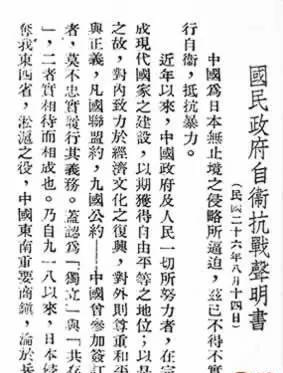 國民政府自衛抗戰聲明書
(民國二十六年八月十四日)
中國爲日本無止境之侵略所逼迫,茲已不得不實
行自衛,抵抗暴力。
近年以來,中國政府及人民一切所努力者,在完
成現代國家之建設,以期獲得自由平等之地位;以是
之故,對內致力於經濟文化之復興,對外則尊重和平
與正義,凡國聯盟約,九國公約——中國曾參加簽訂
者,莫不忠實履行其義務。蓋認爲「獨立」與「共存
」,二者實相待而相成也。乃自九一八以來,日本
奪我東四省,淞滬之役,中國東南重要商鎭,淪於兵